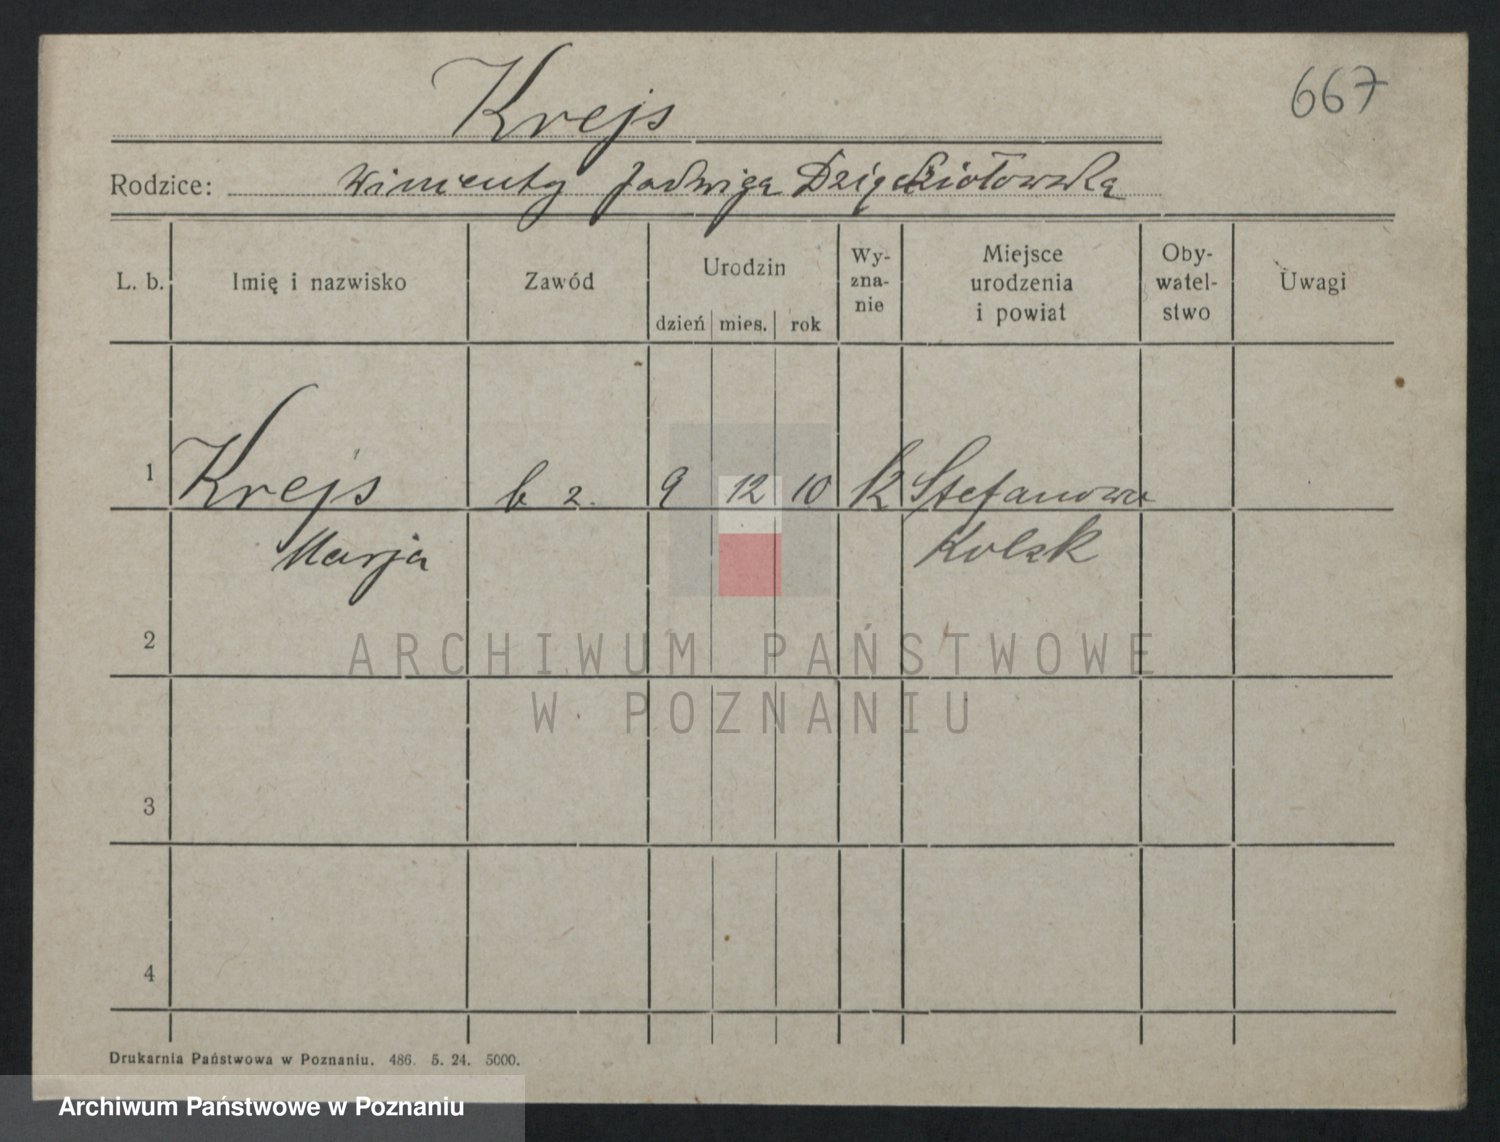 667
Krejs
Rodzice: Wincenty Jadwiga Dzięciołowska
L. b. Imię i nazwisko Zawód Urodzin Wy-zna-nie Miejsce urodzenia i powiat Oby-watel-stwo Uwagi
dzień mies. rok
1 Krejs b z. 9 12 10 k Stefanowo
Marja Kolsk
2
ARCHIWUM PAŃSTWOWE
W POZNANIU
3
4
Drukarnia Państwowa w Poznaniu. 486. 5. 24. 5000.
Archiwum Państwowe w Poznaniu